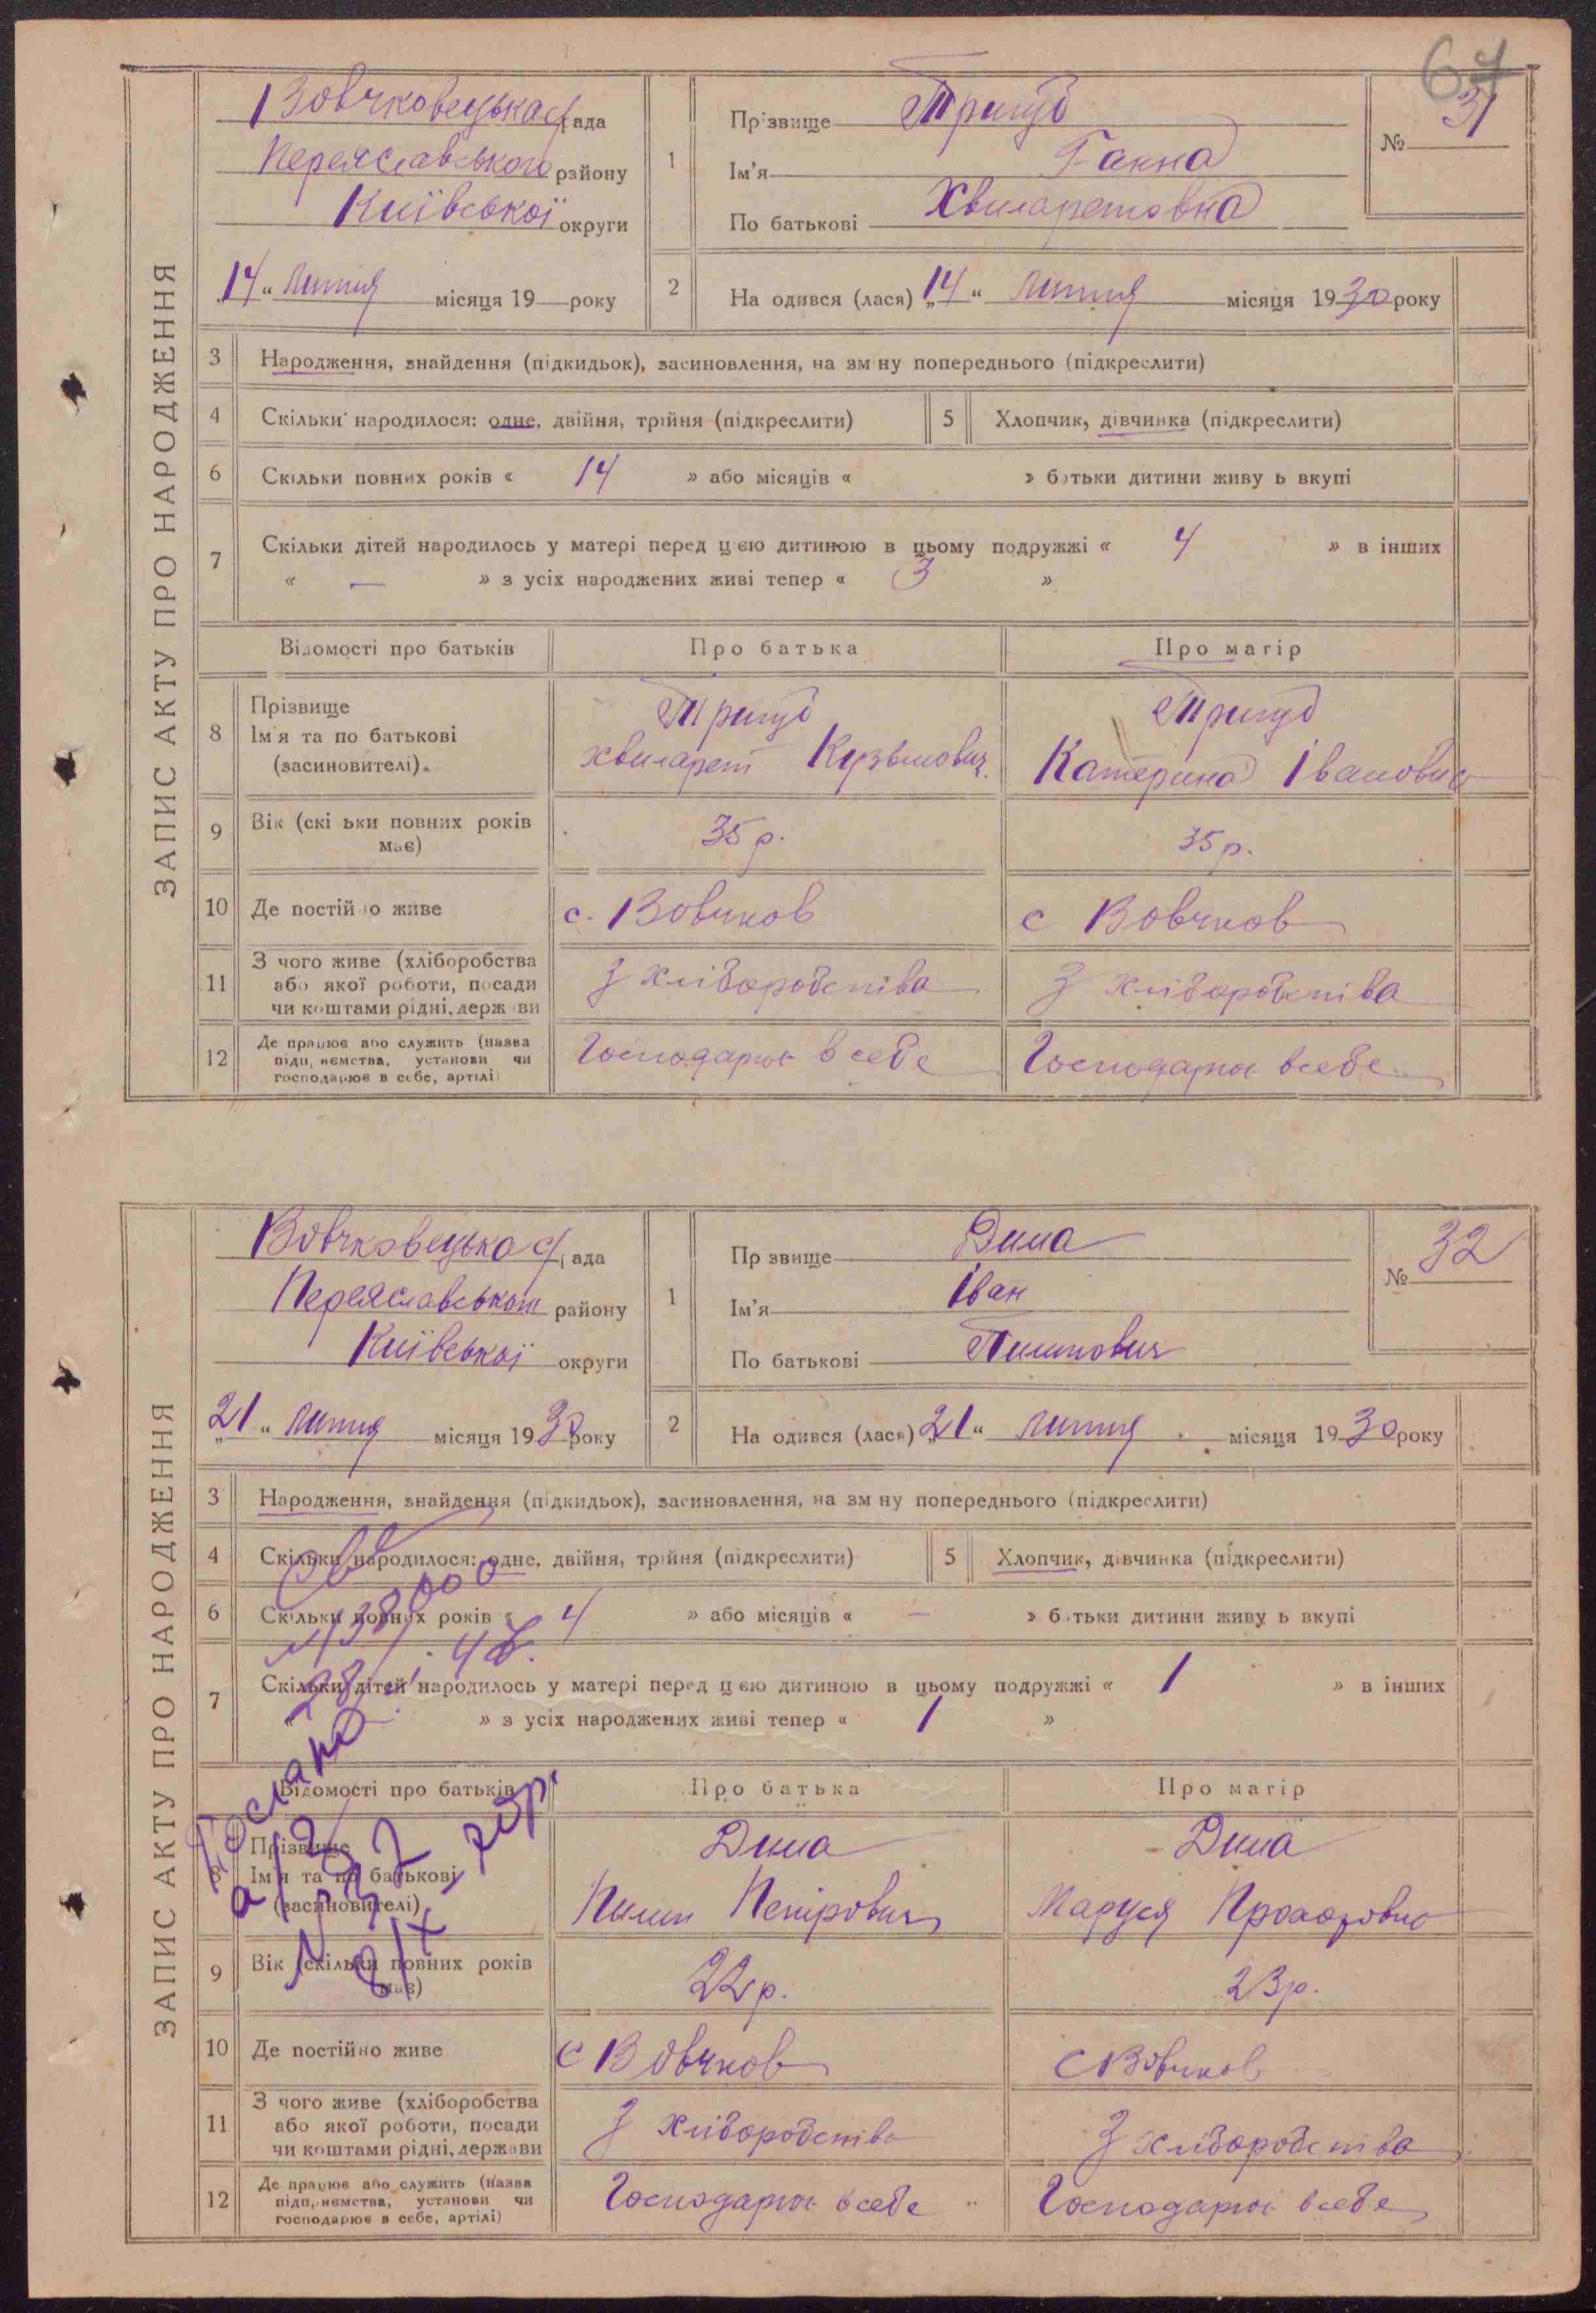 67
ЗАПИС АКТУ ПРО НАРОДЖЕННЯ
Вовчковецька сільрада
Переяславського району
Київської округи
„14“ Липня місяця 19 року
1
Прізвище Тригуб
Ім'я Ганна
По батькові Хвиларетовна
№ 31
2
На одився (лася) „14“ Липня місяця 1930 року
3 Народження, знайдення (підкидьок), засиновлення, на зм ну попереднього (підкреслити)
4 Скільки народилося: одне, двійня, трійня (підкреслити)
5 Хлопчик, дівчинка (підкреслити)
6 Скільки повних років « 14 » або місяців « » батьки дитини живу ь вкупі
7 Скільки дітей народилось у матері перед цією дитиною в цьому подружжі « 4 » в інших
« — » з усіх народжених живі тепер « 3 »
Відомості про батьків Про батька Про матір
8 Прізвище
Ім'я та по батькові
(засиновителі).
Тригуб
Хвиларет Кузьмович.
Тригуб
Катерина Івановна
9 Вік (скі ьки повних років
має)
35 р.
35 р.
10 Де постійно живе
с. Вовчков
с Вовчков
11 З чого живе (хліборобства
або якої роботи, посади
чи коштами рідні, держави
З хліборобства
З хліборобства
12 Де працює або служить (назва
підприємства, установи чи
господарює в себе, артілі)
Господарює в себе
Господарює в себе
ЗАПИС АКТУ ПРО НАРОДЖЕННЯ
Вовчковецька сільрада
Переяславського району
Київської округи
„21“ Липня місяця 1930 року
1
Пр звище Дима
Ім'я Іван
По батькові Пилипович
№ 32
2
На одився (лася) „21“ Липня місяця 1930 року
3 Народження, знайдення (підкидьок), засиновлення, на зм ну попереднього (підкреслити)
4 Скільки народилося: одне, двійня, трійня (підкреслити)
5 Хлопчик, дівчинка (підкреслити)
6 Скільки повних років « 4 » або місяців « — » батьки дитини живу ь вкупі
7 Скільки дітей народилось у матері перед цією дитиною в цьому подружжі « 1 » в інших
» з усіх народжених живі тепер « 1 »
Відомості про батьків Про батька Про матір
8 Прізвище
Ім'я та по батькові
(засиновителі)
Дима
Пилип Петрович
Дима
Маруся Прохоровна
9 Вік (скільки повних років
має)
22 р.
23 р.
10 Де постійно живе
с Вовчков
с Вовчков
11 З чого живе (хліборобства
або якої роботи, посади
чи коштами рідні, держави
З хліборобства
З хліборобства
12 Де працює або служить (назва
підприємства, установи чи
господарює в себе, артілі)
Господарює в себе
Господарює в себе